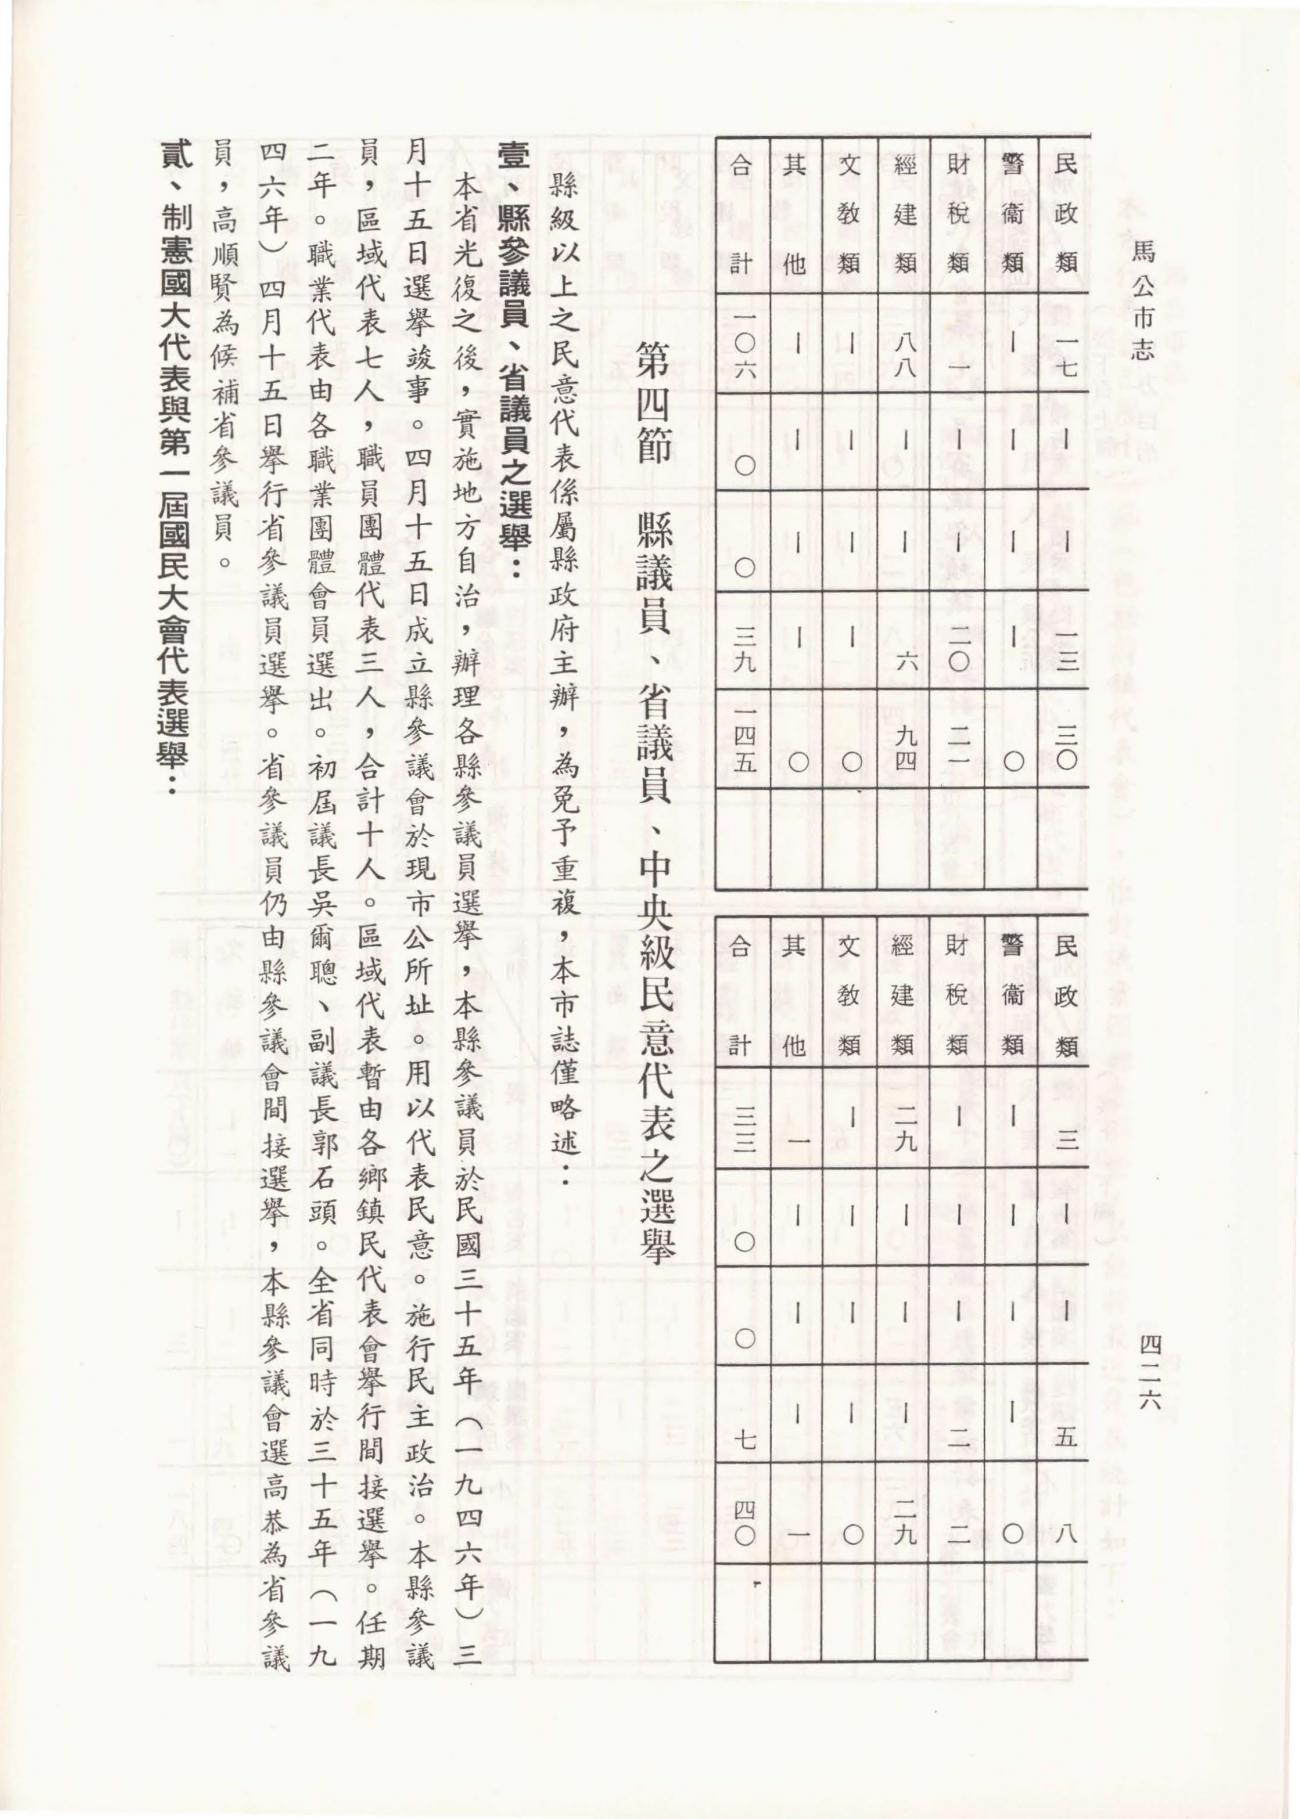 馬公市志
四二六
民政類 一七 — — 一三 三〇
警衞類 — — — — 〇
財稅類 一 — — 二〇 二一
經建類 八八 — — 六 九四
文教類 — — — — 〇
其他 — — — — 〇
合計 一〇六 〇 〇 三九 一四五
民政類 三 — — 五 八
警衞類 — — — — 〇
財稅類 — — — 二 二
經建類 二九 — — — 二九
文教類 — — — — 〇
其他 一 — — — 一
合計 三三 〇 〇 七 四〇
第四節 縣議員、省議員、中央級民意代表之選舉
縣級以上之民意代表係屬縣政府主辦，為免予重複，本市誌僅略述：
壹、縣參議員、省議員之選舉：
本省光復之後，實施地方自治，辦理各縣參議員選舉，本縣參議員於民國三十五年（一九四六年）三
月十五日選舉竣事。四月十五日成立縣參議會於現市公所址。用以代表民意。施行民主政治。本縣參議
員，區域代表七人，職員團體代表三人，合計十人。區域代表暫由各鄉鎮民代表會舉行間接選舉。任期
二年。職業代表由各職業團體會員選出。初屆議長吳爾聰、副議長郭石頭。全省同時於三十五年（一九
四六年）四月十五日舉行省參議員選舉。省參議員仍由縣參議會間接選舉，本縣參議會選高恭為省參議
員，高順賢為候補省參議員。
貳、制憲國大代表與第一屆國民大會代表選舉：